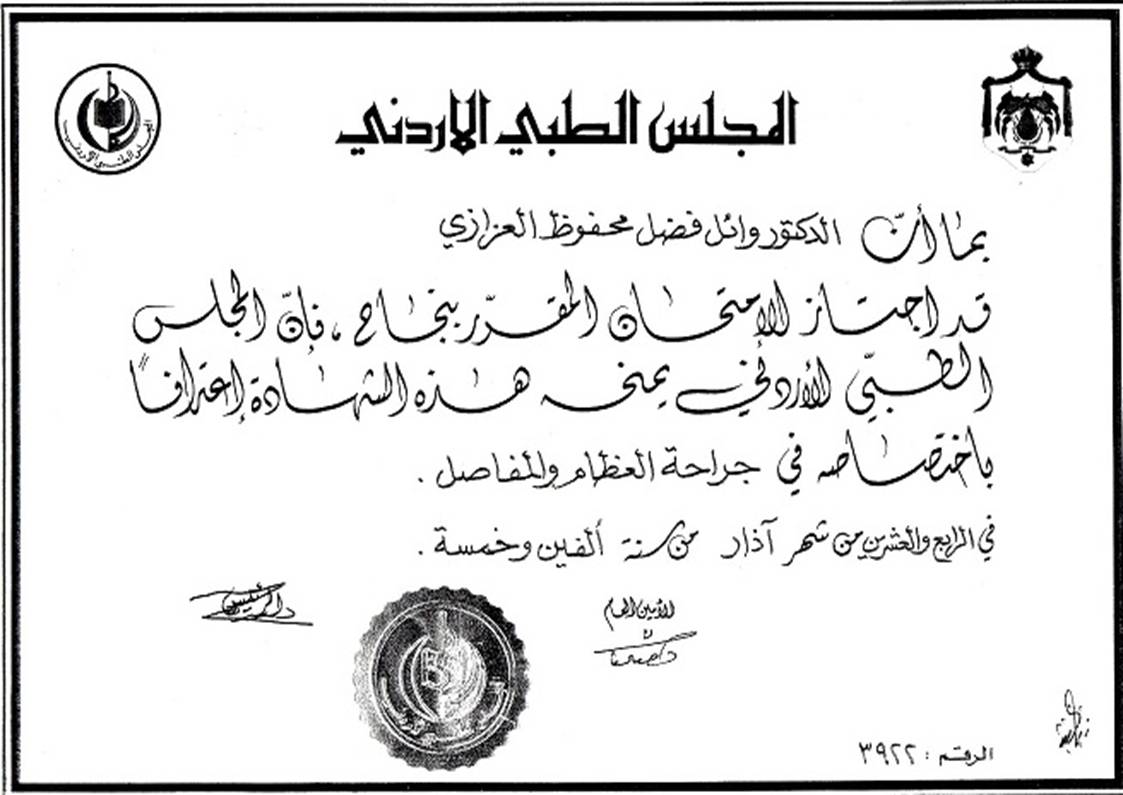 المجلس الطبي الاردني
بما أنّ الدكتور وائل فضل محفوظ العزازي
قد اجتاز الإمتحان المقرّر بنجاح ، فإنّ المجلس
الطبيّ الأردني يمنحه هذه الشهادة إعترافاً
باختصاصه في جراحة العظام والمفاصل .
في الرابع والعشرين من شهر آذار من سنة ألفين وخمسة .
الرئيس
الأمين العام
الرقم : ٣٩٢٢
المجلس الطبي الأردني